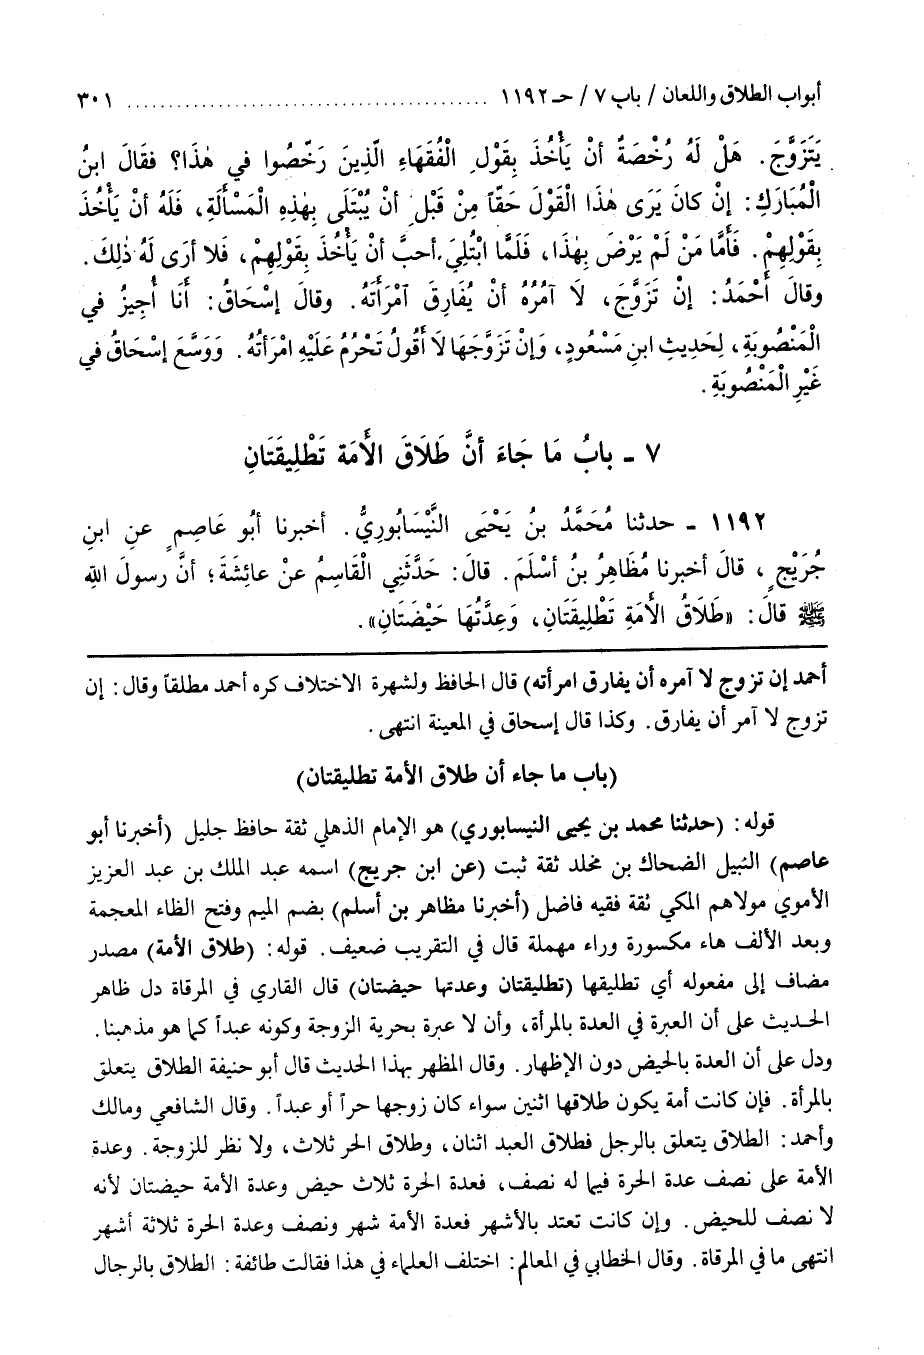 أبواب الطلاق واللعان / باب ٧ / حـ ١١٩٢ ........................................ ٣٠١
يَتَزَوَّجَ. هَلْ لَهُ رُخْصَةٌ أنْ يَأْخُذَ بِقَوْلِ الْفُقَهَاءِ الَّذِينَ رَخَّصُوا في هٰذَا؟ فقَالَ ابنُ
الْمُبَارَكِ: إنْ كانَ يَرَى هٰذَا الْقَوْلَ حَقّاً مِنْ قَبْلِ أنْ يُبْتَلَى بِهٰذِهِ الْمَسْأَلَةِ، فَلَهُ أنْ يَأْخُذَ
بِقَوْلِهِمْ. فَأَمَّا مَنْ لَمْ يَرْضَ بِهٰذَا، فَلَمَّا ابْتُلِيَ، أحبَّ أنْ يَأْخُذَ بِقَوْلِهِمْ، فَلا أرَى لَهُ ذٰلِكَ.
وقالَ أَحْمَدُ: إنْ تَزَوَّجَ، لَا آمُرُهُ أنْ يُفَارِقَ آمْرَأَتَه. وقالَ إسْحَاقُ: أَنَا أُجِيزُ في
الْمَنْصُوبَةِ، لِحَدِيثِ ابنِ مَسْعُودٍ، وَإنْ تَزَوَّجَهَا لَا أَقُولُ تَحْرُمُ عَلَيْهِ امْرَأتُهُ. وَوَسَّعَ إسْحَاقُ في
غَيْرِ الْمَنْصُوبَةِ.
٧ ـ بابُ مَا جَاءَ أنَّ طَلَاقَ الأَمَة تَطْلِيقَتَانِ
١١٩٢ ـ حدثنا مُحَمَّدُ بنُ يَحْيَى النَّيْسَابُورِيُّ. أخبرنا أبُو عَاصِمٍ عنِ ابنِ
جُرَيْجٍ، قالَ أخبرنا مُظَاهِرُ بنُ أسْلَمَ. قالَ: حَدَّثَنِي الْقَاسِمُ عنْ عائِشَةَ؛ أنَّ رسولَ اللهِ
ﷺ قالَ: «طَلَاقُ الأمَةِ تَطْلِيقَتَانِ، وَعِدَّتُهَا حَيْضَتَانِ».
أحمد إن تزوج لا آمره أن يفارق امرأته) قال الحافظ ولشهرة الاختلاف كره أحمد مطلقاً وقال: إن
تزوج لا آمر أن يفارق. وكذا قال إسحاق في المعينة انتهى.
(باب ما جاء أن طلاق الأمة تطليقتان)
قوله: (حدثنا محمد بن يحيى النيسابوري) هو الإمام الذهلي ثقة حافظ جليل (أخبرنا أبو
عاصم) النبيل الضحاك بن مخلد ثقة ثبت (عن ابن جريج) اسمه عبد الملك بن عبد العزيز
الأموي مولاهم المكي ثقة فقيه فاضل (أخبرنا مظاهر بن أسلم) بضم الميم وفتح الظاء المعجمة
وبعد الألف هاء مكسورة وراء مهملة قال في التقريب ضعيف. قوله: (طلاق الأمة) مصدر
مضاف إلى مفعوله أي تطليقها (تطليقتان وعدتها حيضتان) قال القاري في المرقاة دل ظاهر
الحديث على أن العبرة في العدة بالمرأة، وأن لا عبرة بحرية الزوجة وكونه عبداً كما هو مذهبنا.
ودل على أن العدة بالحيض دون الإظهار. وقال المظهر بهذا الحديث قال أبو حنيفة الطلاق يتعلق
بالمرأة. فإن كانت أمة يكون طلاقها اثنين سواء كان زوجها حراً أو عبداً. وقال الشافعي ومالك
وأحمد: الطلاق يتعلق بالرجل فطلاق العبد اثنان، وطلاق الحر ثلاث، ولا نظر للزوجة. وعدة
الأمة على نصف عدة الحرة فيما له نصف، فعدة الحرة ثلاث حيض وعدة الأمة حيضتان لأنه
لا نصف للحيض. وإن كانت تعتد بالأشهر فعدة الأمة شهر ونصف وعدة الحرة ثلاثة أشهر
انتهى ما في المرقاة. وقال الخطابي في المعالم: اختلف العلماء في هذا فقالت طائفة: الطلاق بالرجال